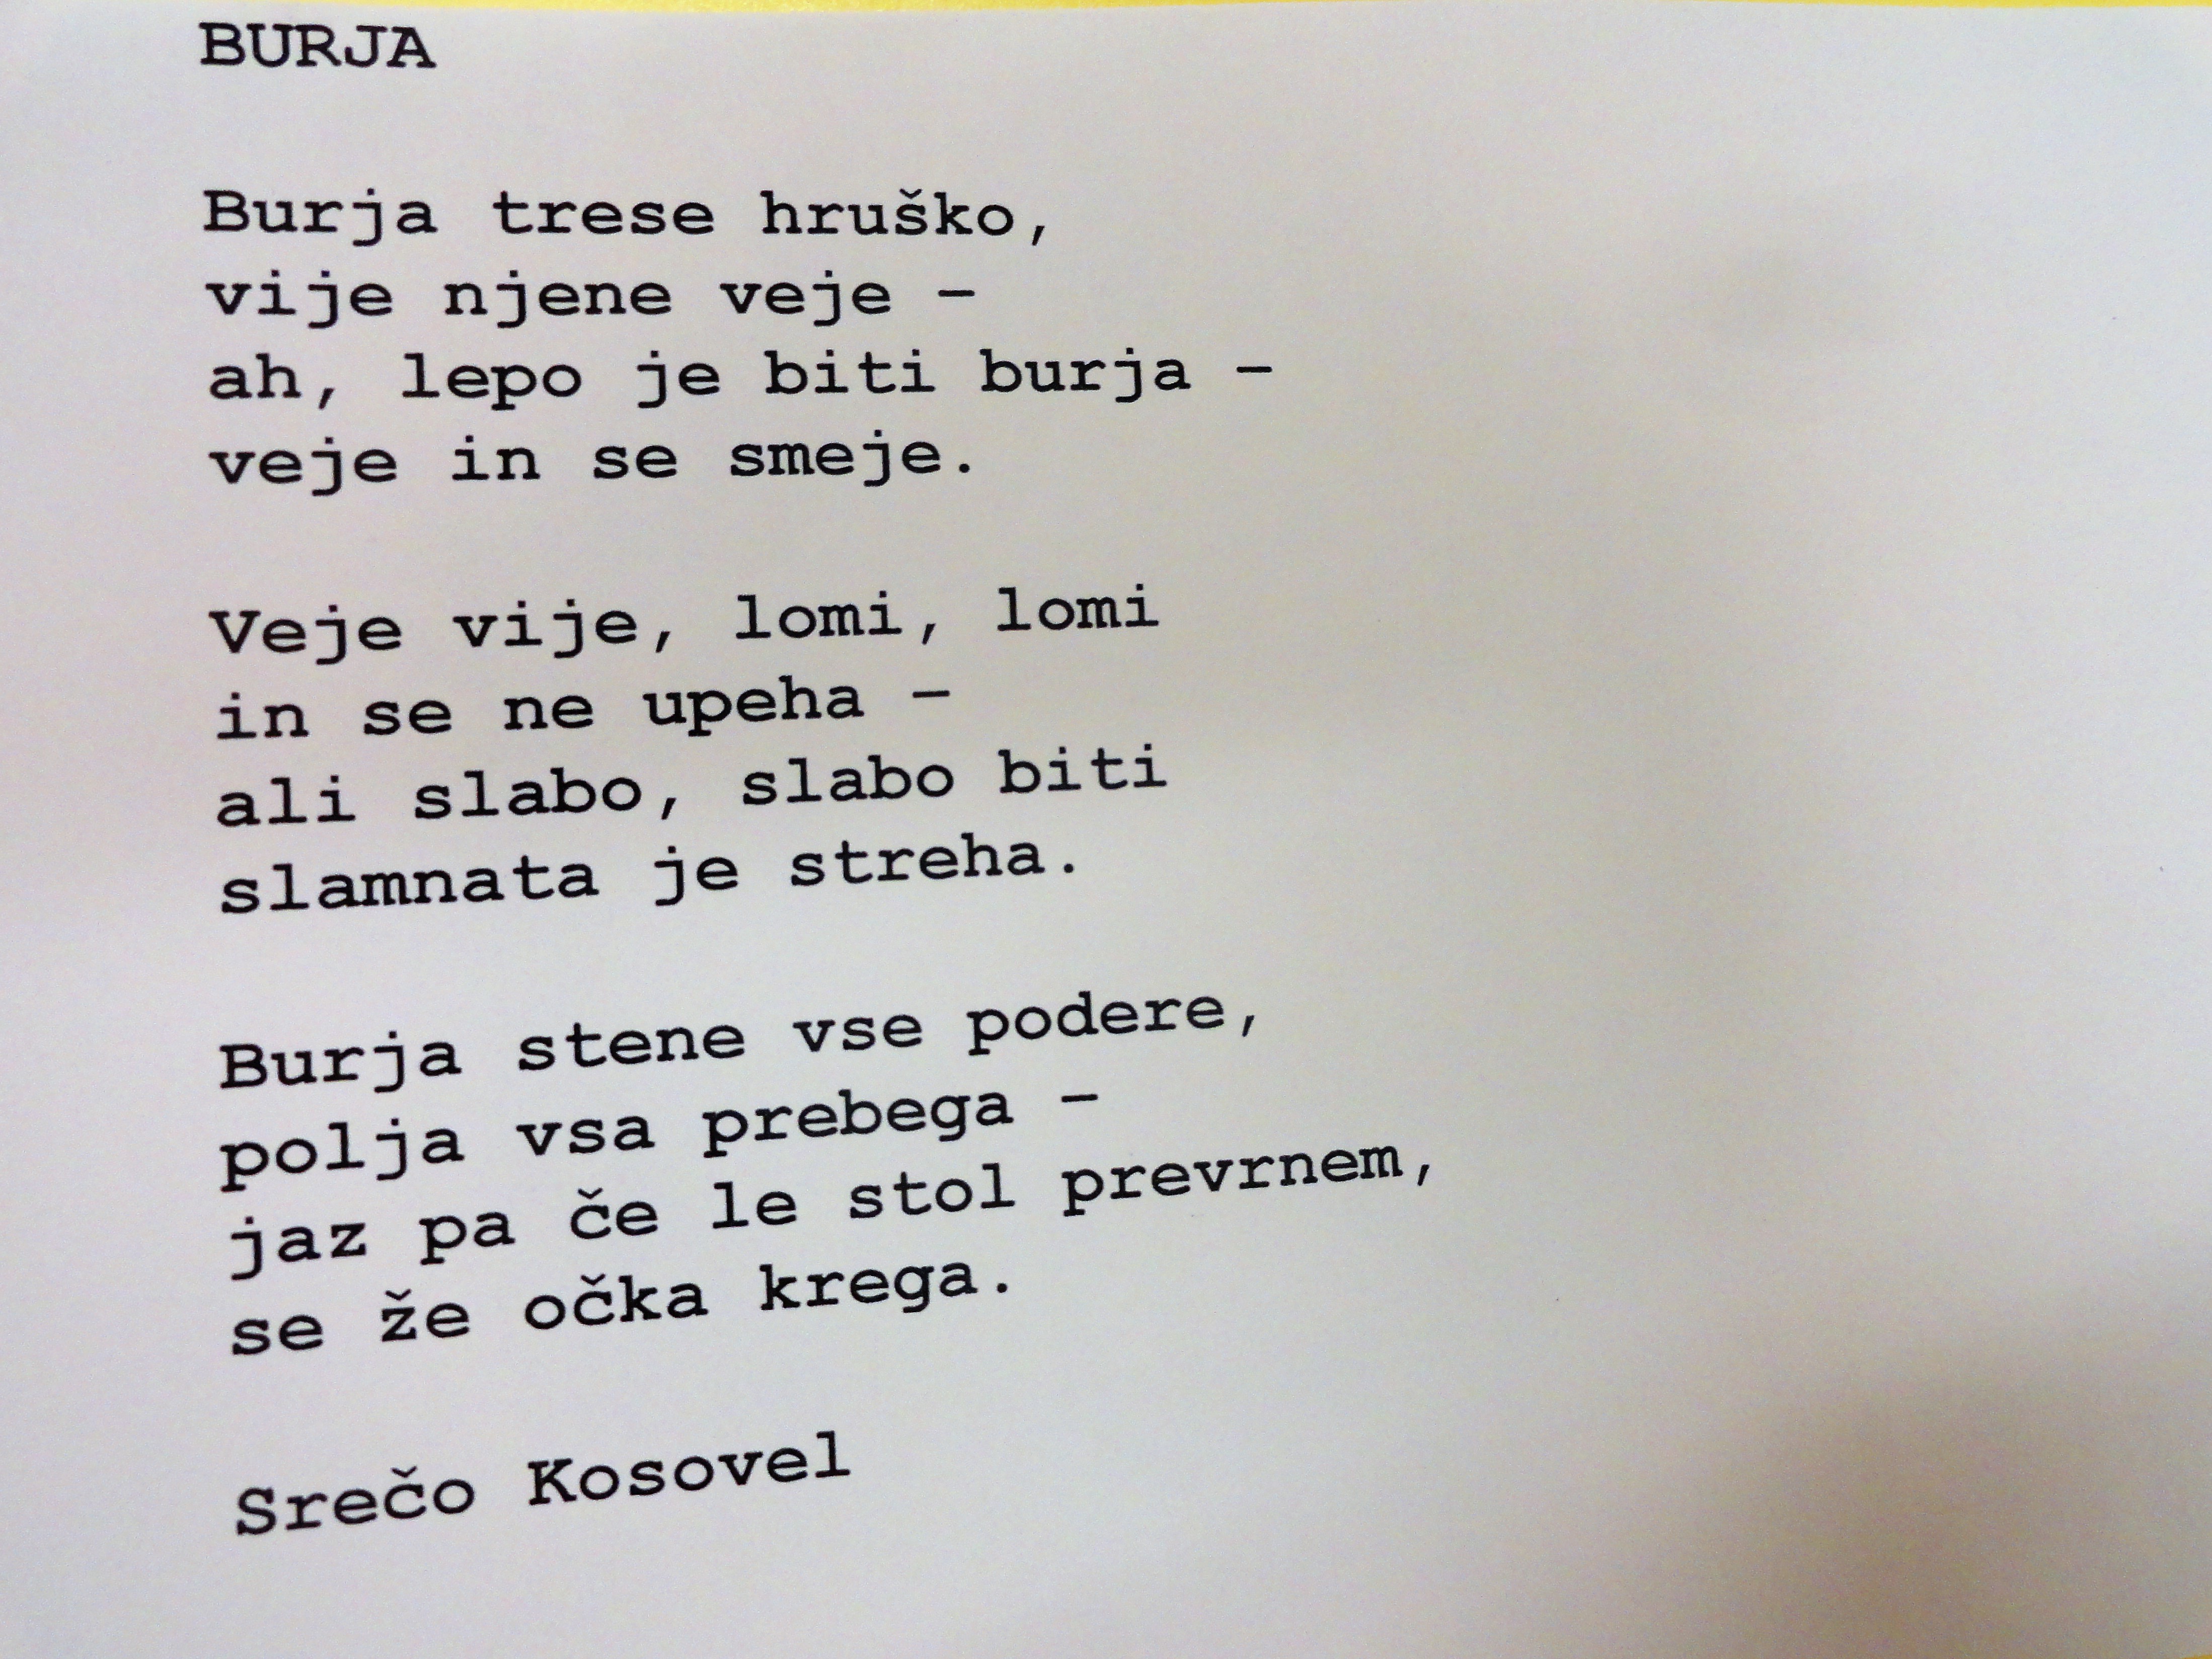 BURJA
Burja trese hruško,
vije njene veje –
ah, lepo je biti burja –
veje in se smeje.
Veje vije, lomi, lomi
in se ne upeha –
ali slabo, slabo biti
slamnata je streha.
Burja stene vse podere,
polja vsa prebega –
jaz pa če le stol prevrnem,
se že očka krega.
Srečo Kosovel